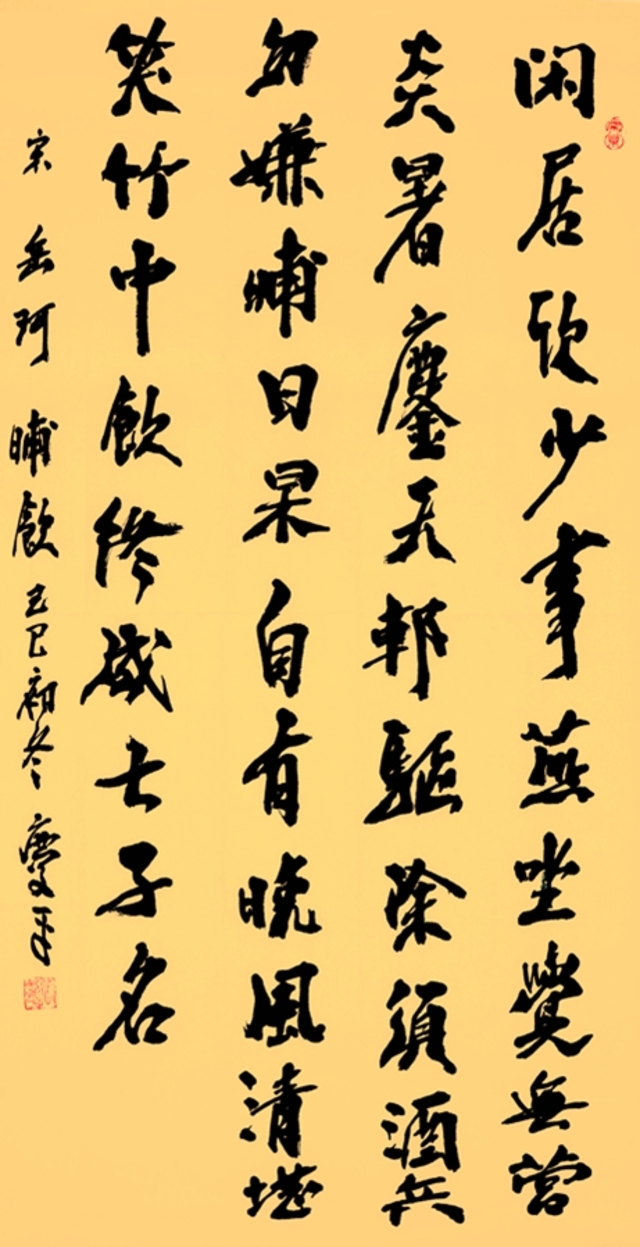 闲居欣少事燕坐覺無營
炎暑鏖无那驅除須酒兵
勿嫌晡日杲自有晚風清堪
笑竹中飲終成七子名
宋 岳珂 晡飲 乙巳初冬 慶